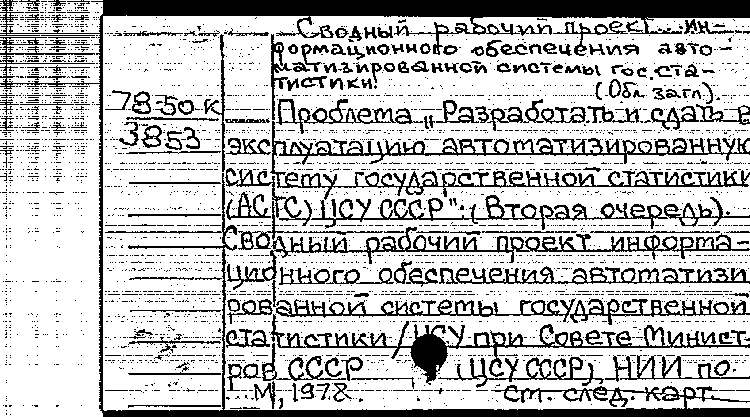 Сводный рабочий проект ин-
формационного обеспечения авто-
матизированной системы гос. ста-
тистики.
(Обл. загл.).
78-50 к
3853
Проблема „Разработать и сдать в
эксплуатацию автоматизированную
систему государственной статистики
(АСГС) ЦСУ СССР": (Вторая очередь).
Сводный рабочий проект информа-
ционного обеспечения автоматизи
рованной системы государственной
статистики / ЦСУ при Совете Минист-
ров СССР (ЦСУ СССР), НИИ по
М, 1978. см. след. карт.